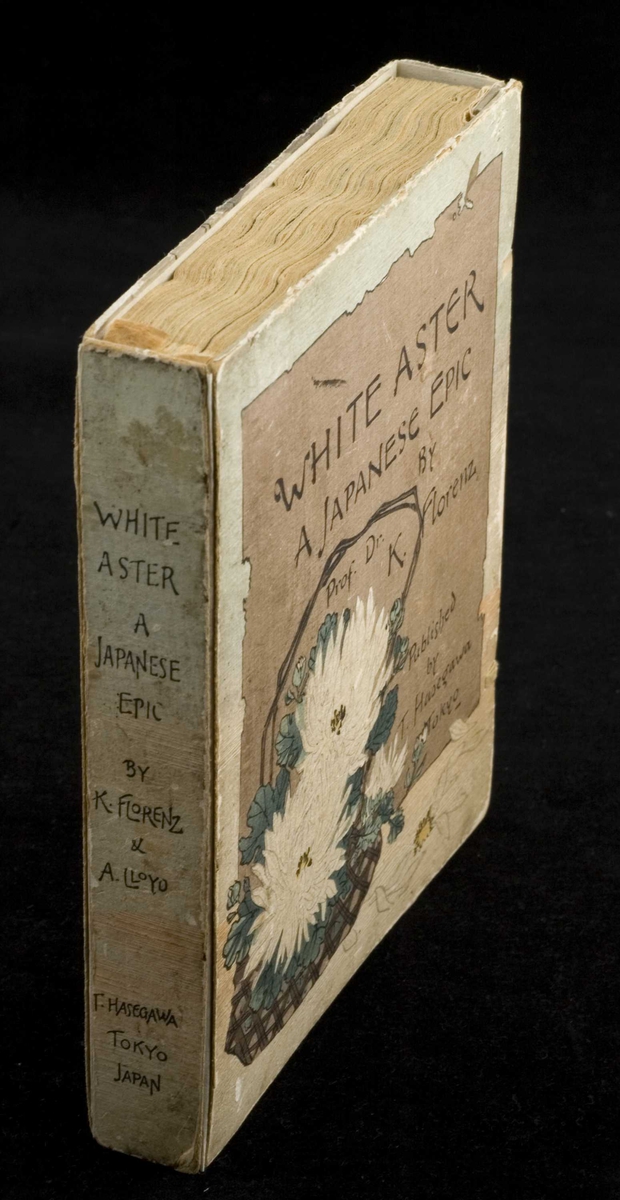 WHITE
ASTER
A
JAPANESE
EPIC
BY
K. FLORENZ
&
A. LLOYD
T. HASEGAWA
TOKYO
JAPAN
WHITE ASTER
A JAPANESE EPIC
BY
Prof. Dr.
K. Florenz
Published
by
T. Hasegawa
Tokyo